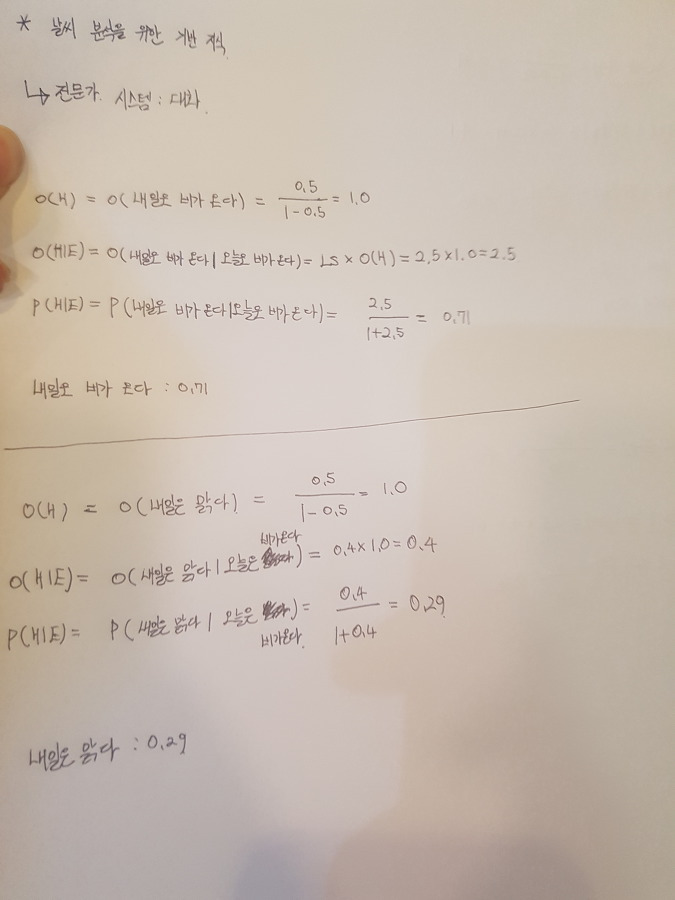 * 날씨 분석을 위한 기반 지식
↳ 전문가 시스템 : 대화
O(H) = O(내일도 비가 온다) = 0.5 / 1-0.5 = 1.0
O(H|E) = O(내일도 비가 온다 | 오늘도 비가 온다) = LS × O(H) = 2.5×1.0=2.5
P(H|E) = P(내일도 비가 온다|오늘도 비가 온다) = 2.5 / 1+2.5 = 0.71
내일도 비가 온다 : 0.71
O(H) = O(내일은 맑다) = 0.5 / 1-0.5 = 1.0
O(H|E) = O(내일은 맑다 | 오늘은 비가온다) = 0.4×1.0=0.4
P(H|E) = P(내일은 맑다 | 오늘은 비가온다) = 0.4 / 1+0.4 = 0.29
내일은 맑다 : 0.29